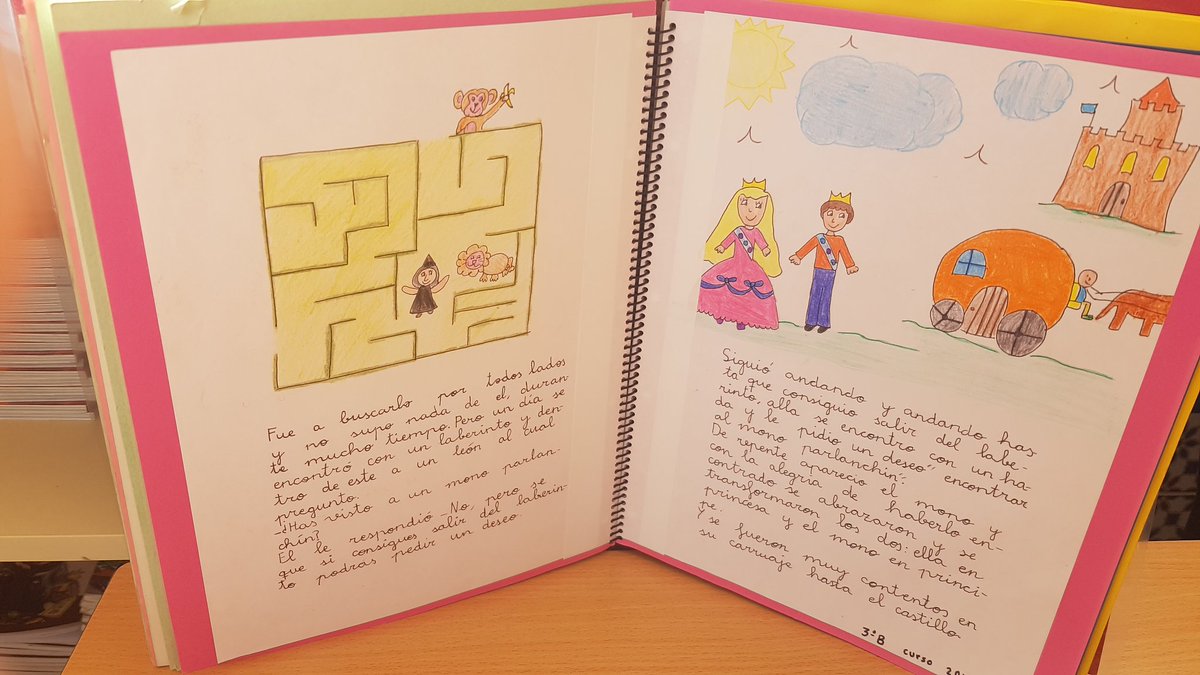 Fue a buscarlo por todos lados
y no supo nada de el, duran-
te mucho tiempo. Pero un día se
encontró con un laberinto y den-
tro de este a un león al cual
pregunto.
-¿Has visto a un mono parlan-
chín?
El le respondió -No, pero se
que si consigues salir del laberin-
to podras pedir un deseo.
Siguió andando y andando has
ta que consiguio salir del labe-
rinto, alla se encontro con un ha-
da y le pidio un deseo" encontrar
al mono parlanchin".
De repente aparecio el mono y
con la alegria de haberlo en-
contrado se abrararon y se
transformaron los dos: ella en
princesa y el mono en princi-
pe.
Y se fueron muy contentos en
su carruaje hasta el castillo.
3ºB curso